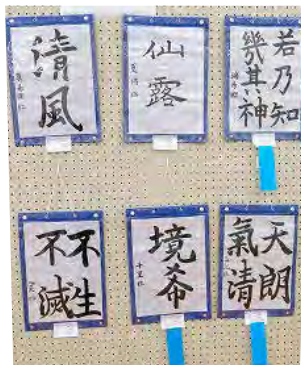 清風
仙露
若乃知
幾其神
不生
不滅
境希
天朗
氣清